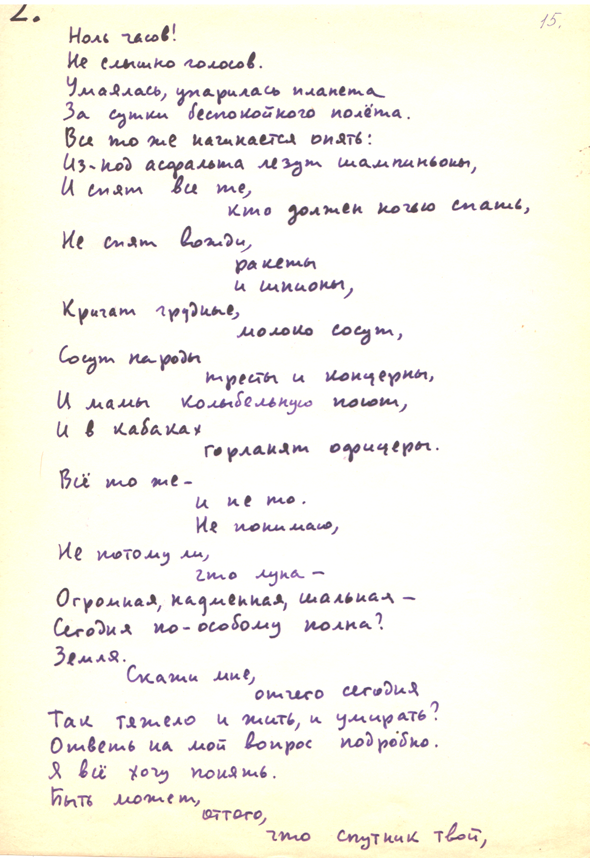 2.
15.
Ноль часов!
Не слышно голосов.
Умаялась, упарилась планета
За сутки беспокойного полёта.
Все то же начинается опять:
Из-под асфальта лезут шампиньоны,
И спят все те,
кто должен ночью спать,
Не спят вожди,
ракеты
и шпионы,
Кричат грудные,
молоко сосут,
Сосут народы
тресты и концерны,
И мамы колыбельную поют,
И в кабаках
горланят офицеры.
Всё то же –
и не то.
Не понимаю,
Не потому ли,
что луна –
Огромная, надменная, шальная –
Сегодня по-особому полна?
Земля.
Скажи мне,
отчего сегодня
Так тяжело и жить, и умирать?
Ответь на мой вопрос подробно.
Я всё хочу понять.
Быть может,
оттого,
что спутник твой,